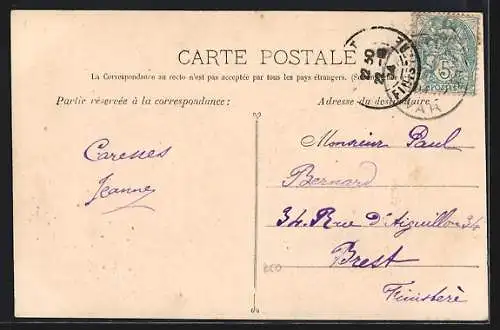 CARTE POSTALE
La Correspondance au recto n'est pas acceptée par tous les pays étrangers.
Partie réservée à la correspondance :
Adresse du destinataire
FINISTERE
5
Caresses
Jeanne
Monsieur Paul
Bernard
34. Rue d'Aiguillon 34
Brest
Finistère
250